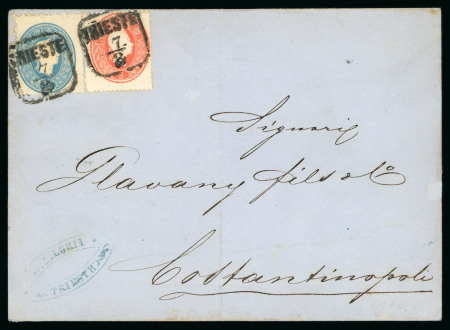 TRIESTE
7/8
TRIESTE
7/8
Signori
Glavany fils & Cº
Costantinopoli
TRIESTE